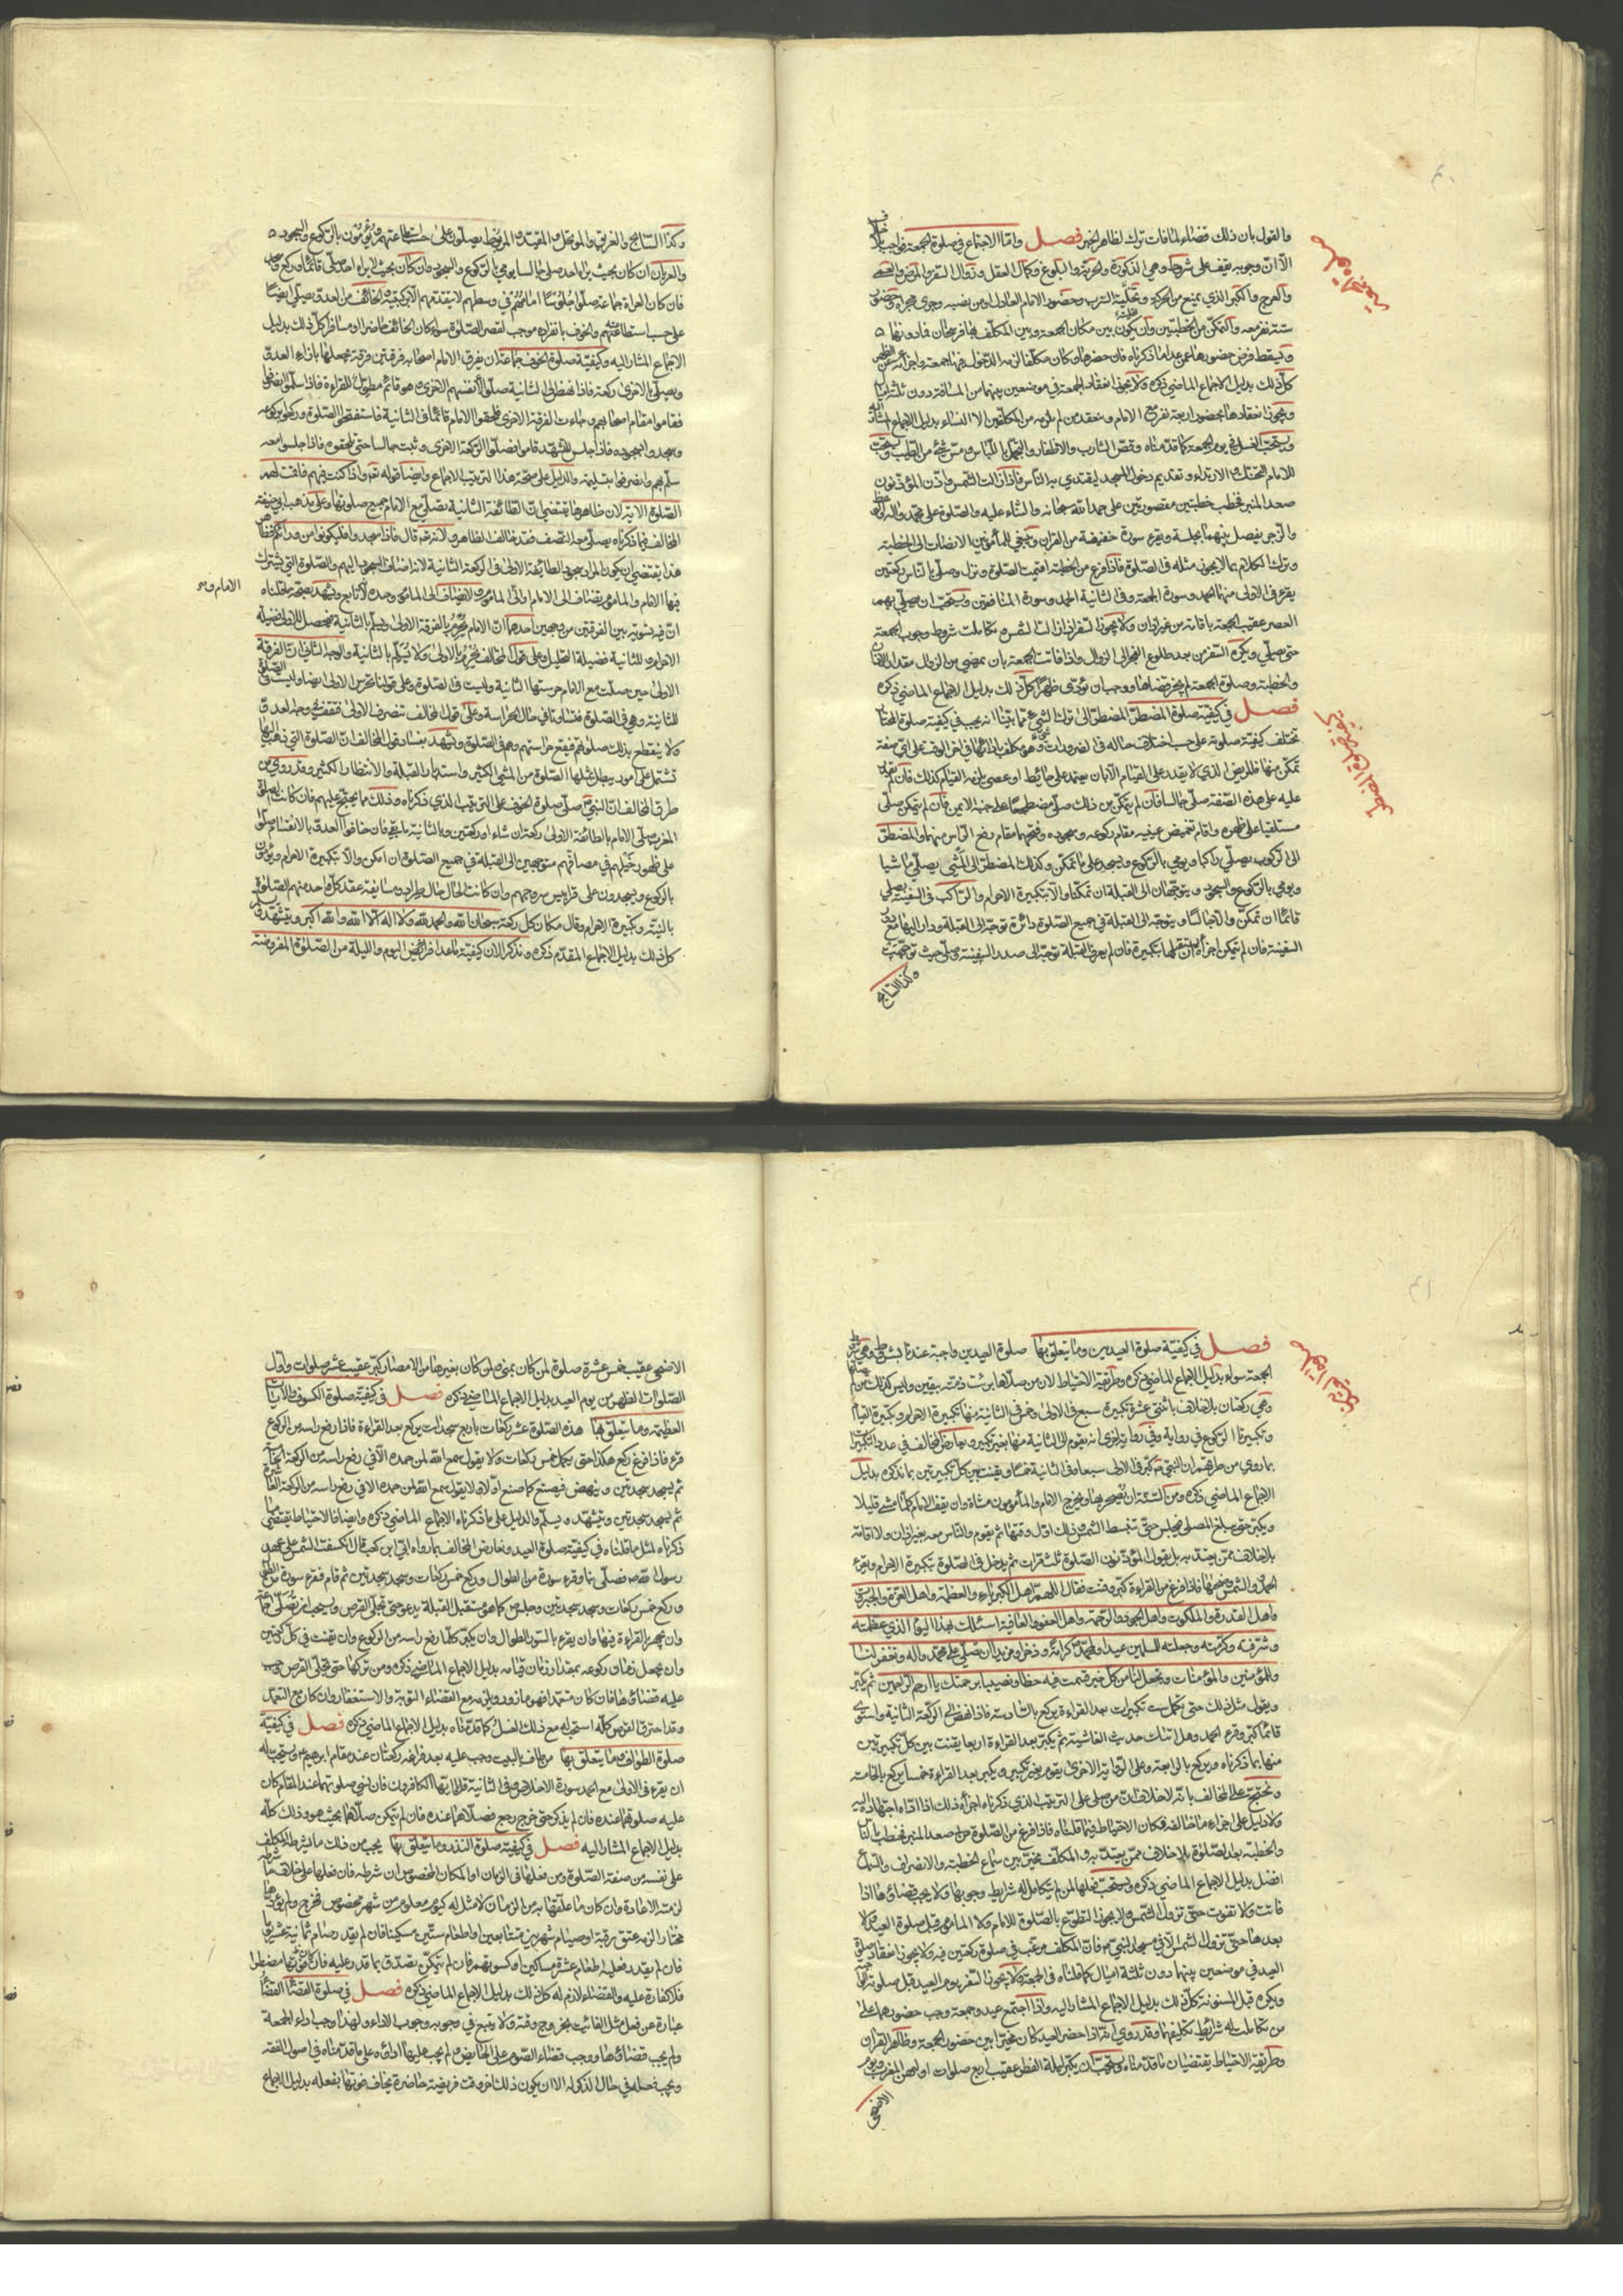 والقول بان ذلك قضاء لما فات ترك لظاهر الخبر فصل واما الاجتماع في صلوة الجمعة فواجب بلا خلاف
الا ان وجوبه يقف على شروط وهي الذكورة والحرية والبلوغ وكمال العقل وزوال السفر والمرض والعمى
والعرج والكبر الذي يمنع من الحركة وتخلية السرب وحضور الامام العادل او من نصبه وجرى مجراه وحضور
ستة نفر معه والتمكن من الخطبتين وان يكون بين مكان الجمعة وبين المكلف بها فرسخان فما دونهما
ويسقط فرض حضورها عمن عدا ما ذكرناه فان حضرها وكان مكلفا لزمه الدخول فيها جمعة واجزأته عن الظهر
كل ذلك بدليل الاجماع الماضي ذكره ولا يجوز انعقاد الجمعة في موضعين بينهما من المسافة دون ثلثة اميال
ويجوز انعقادها بحضور اربعة نفر مع الامام وينعقد بمن لم يلزمه من المكلفين الا النساء بدليل الاجماع المشار اليه
ويستحب الغسل في يوم الجمعة كما قدمناه وقص الشارب والاظفار والتجمل باللباس ومس شئ من الطيب ويستحب
للامام التحنك والارتداء وتقديم دخول المسجد ليقتدي به الناس فاذا زالت الشمس واذن المؤذنون
صعد المنبر فخطب خطبتين مقصورتين على حمد الله سبحانه والثناء عليه والصلوة على محمد واله والوعظ
والزجر يفصل بينهما بجلسة ويقرء سورة خفيفة من القران وينبغي للمأمومين الانصات الى الخطبة
وترك الكلام بما لا يجوز مثله في الصلوة فاذا فرغ من الخطبة اقيمت الصلوة ونزل وصلى بالناس ركعتين
يقرء في الاولى منهما الحمد وسورة الجمعة وفي الثانية الحمد وسورة المنافقين ويستحب ان يصلي بهم
العصر عقيب الجمعة باقامة من غير اذان ولا يجوز السفر اذا زالت الشمس وتكاملت شروط وجوب الجمعة
حتى يصلي ويكره السفر من بعد طلوع الفجر الى الزوال واذا فاتت الجمعة بان يمضي من الزوال مقدار الاذان
والخطبة وصلوة الجمعة لم يجز قضاؤها ووجب ان تؤدى ظهرا كل ذلك بدليل الاجماع الماضي ذكره
فصل في كيفية صلوة المضطر المضطر الى ترك شئ مما بينا انه يجب في كيفية صلوة المختار
تختلف كيفية صلوته على حسب اختلاف حاله في الضرورات وهو مكلف بادائها في اخر الوقت على اي صفة
تمكن منها فالمريض الذي لا يقدر على القيام الا بان يعتمد على حائط او عصى يلزمه القيام كذلك فان لم يقدر
عليه على هذه الصفة صلى جالسا فان لم يتمكن من ذلك صلى مضطجعا على جنبه الايمن فان لم يتمكن صلى
مستلقيا على ظهره واقام تغميض عينيه مقام ركوعه وسجوده وفتحهما مقام رفع الراس منهما والمضطر
الى الركوب يصلي راكبا ويومي بالركوع ويسجد على ما تمكن وكذلك المضطر الى المشي يصلي ماشيا
ويومي بالركوع والسجود ويتوجهان الى القبلة ان تمكنا والا بتكبيرة الاحرام والراكب في السفينة يصلي
قائما ان تمكن والا جالسا ويتوجه الى القبلة في جميع الصلوة دائرة توجه الى القبلة ودار اليها مع دور
السفينة فان لم يتمكن اجزأه ان يستقبلها بتكبيرة فان لم يعرف القبلة توجه الى صدر السفينة وصلى حيث توجهت
وكذا السابح
وكذا السابح والغريق والموتحل والمقيد والمربوط يصلون على حسب استطاعتهم ويؤمون بالركوع والسجود
والعريان ان كان بحيث يراه احد صلى جالسا يومي بالركوع والسجود وان كان بحيث لا يراه احد صلى قائما وركع وسجد
فان كان العراة جماعة صلوا جلوسا امامهم في وسطهم لا يتقدمهم الا بركبتيه والخائف من العدو يصلي ايضا
على حسب استطاعته والخوف بانفراده موجب لقصر الصلوة سواء كان الخائف حاضرا او مسافرا كل ذلك بدليل
الاجماع المشار اليه وكيفية صلوة الخوف جماعة ان يفرق الامام اصحابه فرقتين فرقة يجعلها بازاء العدو
ويصلي بالاخرى ركعة فاذا نهض الى الثانية صلوا لانفسهم الاخرى وهو قائم مطول للقراءة فاذا سلموا انصرفوا
فقاموا مقام اصحابهم وجاءت الفرقة الاخرى فلحقوا الامام قائما في الثانية فاستفتحوا الصلوة وركعوا بركوعه
وسجدوا بسجوده فاذا جلس للتشهد قاموا فصلوا الركعة الاخرى وثبت جالسا حتى يلحقوه فاذا جلسوا معه
سلم بهم وانصرفوا بتسليمه والدليل على صحة هذا الترتيب الاجماع وايضا قوله تعالى واذا كنت فيهم فاقمت لهم
الصلوة الاية لان ظاهرها يقتضي ان الطائفة الثانية تصلي مع الامام جميع صلوتها وعلى مذهب ابي حنيفة
المخالف فيما ذكرناه يصلي معه النصف فقد خالف الظاهر ولانه تعالى قال فاذا سجدوا فليكونوا من ورائكم
هذا يقتضي ان يكون المراد سجود الطائفة الاولى في الركعة الثانية لانه اضاف السجود اليهم والصلوة التي يشترك
فيها الامام والمأموم يضاف الى الامام والى المأموم ولا يضاف الى المأموم وحده لانه تابع ويشهد بصحة ما قلناه
الامام وهو
ان فيه تسوية بين الفرقتين من وجهين احدهما ان الامام يحرم بالفرقة الاولى ويسلم بالثانية فيحصل للاولى فضيلة
الاحرام وللثانية فضيلة التحليل وعلى قول المخالف يحرم بالاولى ولا يسلم بالثانية والوجه الثاني ان الفرقة
الاولى حين صلت مع الامام حرستها الثانية وليست في الصلوة وعلى قولنا تحرس الاولى ايضا وليست في الصلوة
للثانية وهي في الصلوة فتساويا في حال الحراسة وعلى قول المخالف تنصرف الاولى فتقف وجاه العدو
ولا ينقطع بذلك صلوتهم فيقع حراستهم وهم في الصلوة ويشهد بفساد قول المخالف ان الصلوة التي ذهب اليها
تشتمل على امور يبطل بمثلها الصلوة من المشي الكثير واستدبار القبلة والانتظار الكثير وقد روي من
طرق المخالف ان النبي صلى صلوة الخوف على الترتيب الذي ذكرناه وذلك مما يحتج عليهم فان كانت الصلوة
المغرب صلى الامام بالطائفة الاولى ركعة ان شاء او ركعتين وبالثانية ما بقي فان خافوا العدو بالانقسام صلوا
على ظهور خيلهم في مصافهم متوجهين الى القبلة في جميع الصلوة ان امكن والا بتكبيرة الاحرام ويؤمون
بالركوع ويسجدون على قرابيس سروجهم وان كانت الحال حال طراد ومسايفة عقد كل واحد منهم الصلوة
بالنية وتكبيرة الاحرام وقال مكان كل ركعة سبحان الله والحمد لله ولا اله الا الله والله اكبر ويتشهد ويسلم
كل ذلك بدليل الاجماع المتقدم ذكره ونذكر الان كيفية ما عدا فرائض اليوم والليلة من الصلوة المفروضة
فصل في كيفية صلوة العيدين وما يتعلق بها صلوة العيدين واجبة عندنا بشروط وهي شروط
الجمعة سواء بدليل الاجماع الماضي ذكره وطريقة الاحتياط لان من صلاها برئت ذمته بيقين وليس كذلك من لم يصلها
وهي ركعتان بلا خلاف باثنتي عشرة تكبيرة سبع في الاولى وخمس في الثانية منها تكبيرة الاحرام وتكبيرة القيام
وتكبيرتا الركوع في رواية وفي رواية اخرى انه يقوم الى الثانية منها بغير تكبير ويعارض المخالف في عدد التكبيرات
بما روي من طرقهم ان النبي كبر في الاولى سبعا وفي الثانية خمسا ويقنت بين كل تكبيرتين بما نذكره بدليل
الاجماع الماضي ذكره ومن السنة ان يصحر بها ويخرج الامام والمأمومون مشاة وان يقف الامام كلما مشى قليلا
ويكبر حتى يبلغ المصلى فيجلس حتى تنبسط الشمس وذلك اول وقتها ثم يقوم والناس معه بغير اذان ولا اقامة
بلا خلاف ممن يعتد به بل يقول المؤذنون الصلوة ثلث مرات ثم يدخل في الصلوة بتكبيرة الاحرام ويقرء
الحمد والشمس وضحيها فاذا فرغ من القراءة كبر وقنت فقال اللهم اهل الكبرياء والعظمة واهل العزة والجبروت
واهل القدرة والملكوت واهل الجود والرحمة واهل العفو والعافية اسئلك بهذا اليوم الذي عظمته
وشرفته وكرمته وجعلته للمسلمين عيدا ولمحمد كرامة وذخرا ومزيدا ان تصلي على محمد واله وتغفر لنا
وللمؤمنين والمؤمنات وتجعل لنا من كل خير قسمت فيه حظا ونصيبا برحمتك يا ارحم الراحمين ثم يكبر
ويقول مثل ذلك حتى يكمل ست تكبيرات بعد القراءة يركع بالسادسة فاذا نهض الى الركعة الثانية واستوى
قائما كبر وقرء الحمد وهل اتيك حديث الغاشية ثم يكبر بعد القراءة اربعا يقنت بين كل تكبيرتين
منها بما ذكرناه ويركع بالرابعة وعلى الرواية الاخرى يقوم بغير تكبير ويكبر بعد القراءة خمسا يركع بالخامسة
ويحتج على المخالف بانه لا خلاف ان من صلى على الترتيب الذي ذكرناه اجزأه ذلك اذا اداه اجتهاده اليه
ولا دليل على اجزاء ما خالفه فكان الاحتياط فيما قلناه فاذا فرغ من الصلوة صعد المنبر فخطب بالناس
والخطبة بعد الصلوة بلا خلاف ممن يعتد به والمكلف مخير بين سماع الخطبة والانصراف والسماع
افضل بدليل الاجماع الماضي ذكره ويستحب فعلها لمن لم يتكامل له شرايط وجوبها ولا يجب قضاؤها اذا
فاتت ولا تفوت حتى تزول الشمس ولا يجوز التطوع بالصلوة للامام ولا المأموم قبل صلوة العيد ولا
بعدها حتى تزول الشمس الا في مسجد النبي فان المكلف مرغب في صلوة ركعتين فيه ولا يجوز انعقاد صلوة
العيد في موضعين بينهما دون ثلثة اميال كما قلناه في الجمعة ولا يجوز السفر يوم العيد قبل صلوته الواجبة
ويكره قبل المسنونة كل ذلك بدليل الاجماع المشار اليه واذا اجتمع عيد وجمعة وجب حضورهما على
من تكاملت له شرايط تكليفهما وقد روي انه اذا حضر العيد كان مخيرا بين حضور الجمعة وظاهر القران
وطريقة الاحتياط يقتضيان ما قدمناه ويستحب ان يكبر ليلة الفطر عقيب اربع صلوات اولهن المغرب ويوم
الاضحى
الاضحى عقيب خمس عشرة صلوة لمن كان بمنى ومن كان بغيرها من الامصار كبر عقيب عشر صلوات واول
الصلوات الظهر من يوم العيد بدليل الاجماع الماضي ذكره فصل في كيفية صلوة الكسوف والايات
العظيمة وما يتعلق بها هذه الصلوة عشر ركعات باربع سجدات يركع بعد القراءة فاذا رفع راسه من الركوع
قرء فاذا فرغ ركع هكذا حتى يكمل خمس ركعات ولا يقول سمع الله لمن حمده الا في رفع راسه من الركعة الخامسة
ثم يسجد سجدتين وينهض فيصنع كما صنع اولا ولا يقول سمع الله لمن حمده الا في رفع راسه من الركعة العاشرة
ثم يسجد سجدتين ويتشهد ويسلم والدليل على ما ذكرناه الاجماع الماضي ذكره وايضا فالاحتياط يقتضي ما
ذكرناه لمثل ما قلناه في كيفية صلوة العيد ونعارض المخالف بما رواه ابي ابن كعب قال انكسفت الشمس على عهد
رسول الله ص فصلى بنا وقرء سورة من الطوال وركع خمس ركعات وسجد سجدتين ثم قام فقرء سورة من الطوال
وركع خمس ركعات وسجد سجدتين وجلس كما هو مستقبل القبلة يدعو حتى تجلى القرص ويستحب ان يصلى جماعة
وان يجهر بالقراءة فيها وان يقرء بالسور الطوال وان يكبر كلما رفع راسه من الركوع وان يقنت في كل ركعتين
وان يجعل زمان ركوعه بمقدار زمان قيامه بدليل الاجماع الماضي ذكره ومن تركها حتى تجلى القرص وجب
عليه قضاؤها فان كان متعمدا فهو مازور ويلزمه مع القضاء التوبة والاستغفار وان كان مع التعمد
وقد احترق القرص كله استحب له مع ذلك الغسل كما قدمناه بدليل الاجماع الماضي ذكره فصل في كيفية
صلوة الطواف وما يتعلق بها من طاف بالبيت وجب عليه بعد فراغه ركعتان عند مقام ابرهيم ويستحب له
ان يقرء في الاولى مع الحمد سورة الاخلاص وفي الثانية قل يا ايها الكافرون فان نسي صلوتهما عند المقام كان
عليه صلوتهما عنده فان لم يذكر حتى خرج رجع فصلاهما عنده فان لم يتمكن صلاهما بحيث هو وذلك كله
بدليل الاجماع المشار اليه فصل في كيفية صلوة النذر وما يتعلق بها يجب من ذلك ما يشرطه المكلف
على نفسه من صفة الصلوة ومن فعلها في الزمان او المكان المخصوص ان شرطه فان فعلها على خلاف ما شرطه
لزمته الاعادة وان كان ما علقها به من الزمان لا مثل له كيوم معلوم من شهر مخصوص فخرج ولم يؤدها
مختارا لزمه عتق رقبة او صيام شهرين متتابعين او اطعام ستين مسكينا فان لم يقدر صام ثمانية عشر يوما
فان لم يقدر فعليه اطعام عشرة مساكين او كسوتهم فان لم يتمكن تصدق بما قدر عليه فان كان فوتها مضطرا
فلا كفارة عليه والقضاء لازم له كل ذلك بدليل الاجماع الماضي ذكره فصل في صلوة القضاء القضاء
عبارة عن فعل مثل الفائت بخروج وقته ولا يتبع في وجوبه وجوب الاداء ولهذا وجب اداء الجمعة
ولم يجب قضاؤها ووجب قضاء الصوم على الحائض ولم يجب عليها اداؤه على ما قدمناه في اصول الفقه
ويجب فعله في حال الذكر له الا ان يكون ذلك اخر وقت فريضة حاضرة يخاف فوتها بفعله بدليل الاجماع